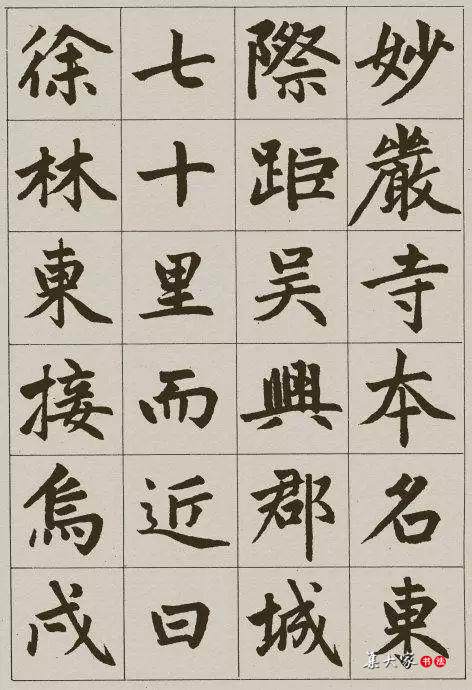 妙嚴寺本名東
際距吴興郡城
七十里而近曰
徐林東接烏戍
集大家書法